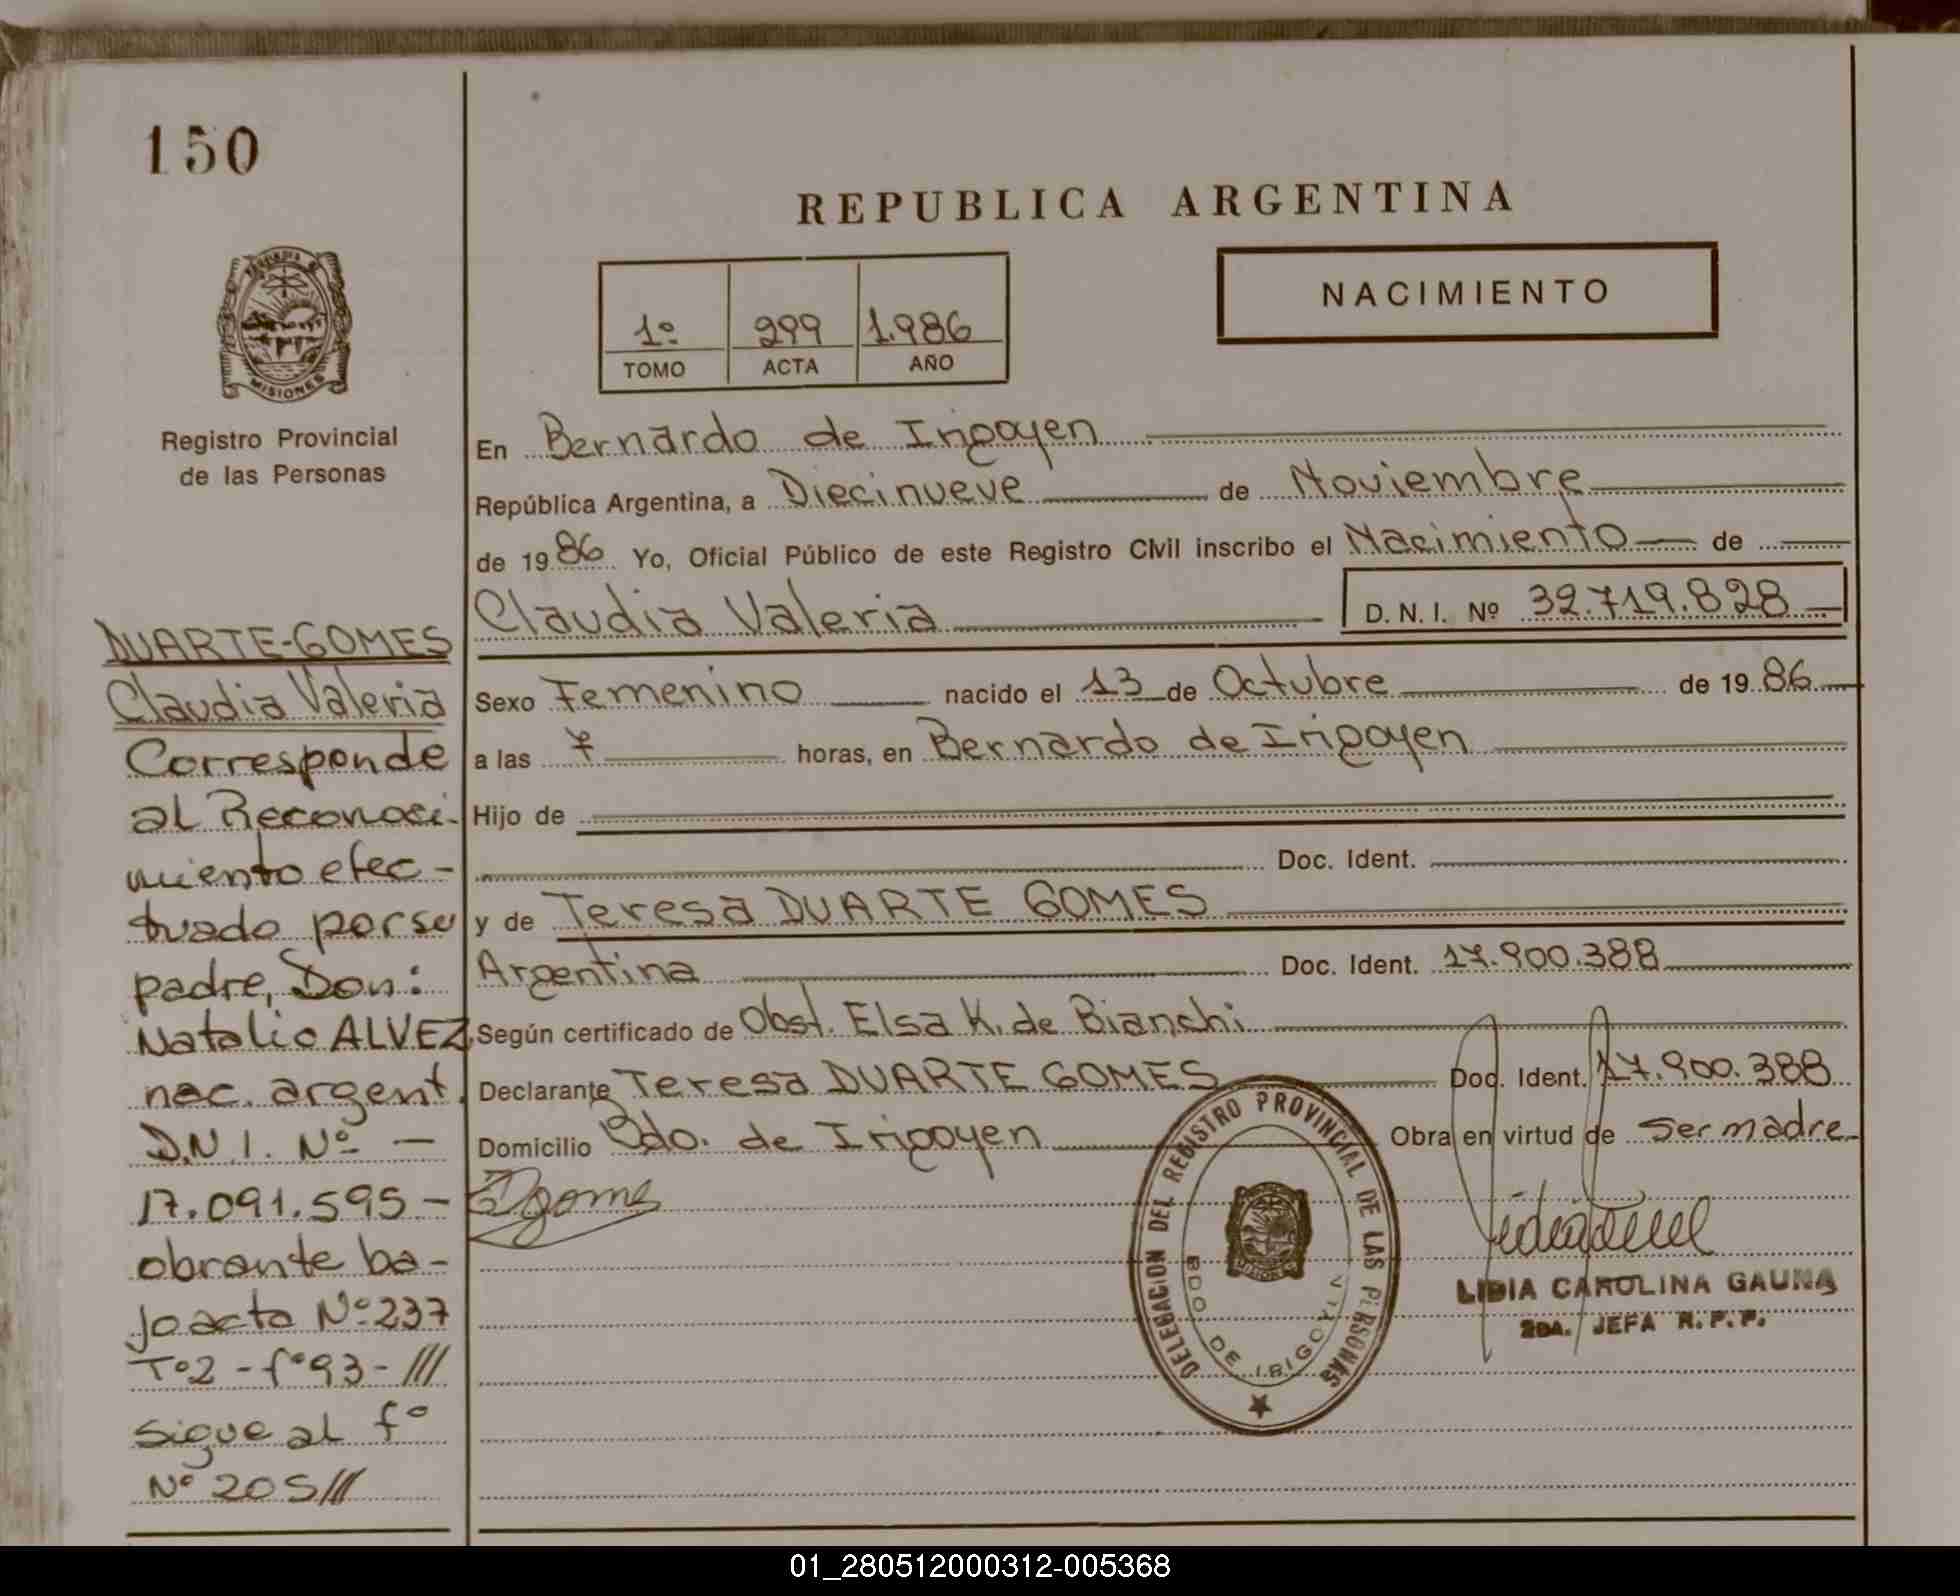 150
REPUBLICA ARGENTINA
MISIONES
Registro Provincial
de las Personas
1º 299 1.986
TOMO ACTA AÑO
NACIMIENTO
En Bernardo de Irigoyen
República Argentina, a Diecinueve de Noviembre
de 1986 Yo, Oficial Público de este Registro Civil inscribo el Nacimiento de
Claudia Valeria D. N. I. Nº 32.719.828
Sexo Femenino nacido el 13 de Octubre de 1986
a las 7 horas, en Bernardo de Irigoyen
Hijo de
Doc. Ident.
y de Teresa DUARTE GOMES
Argentina Doc. Ident. 17.900.388
Según certificado de Obst. Elsa K. de Bianchi
Declarante Teresa DUARTE GOMES Doc. Ident. 17.900.388
Domicilio Bdo. de Irigoyen Obra en virtud de ser madre
DUARTE-GOMES
Claudia Valeria
Corresponde
al Reconoci-
miento efec-
tuado por su
padre, Don:
Natalio ALVEZ
nac. argent.
D.N.I. Nº —
17.091.595 —
obrante ba-
jo acta Nº 237
Tº2 - fº 93 - ///
sigue al fº
Nº 205///
DELEGACION DEL REGISTRO PROVINCIAL DE LAS PERSONAS
BDO DE IRIGOYEN
LIDIA CAROLINA GAUNA
2DA. JEFA R.P.P.
01_280512000312-005368